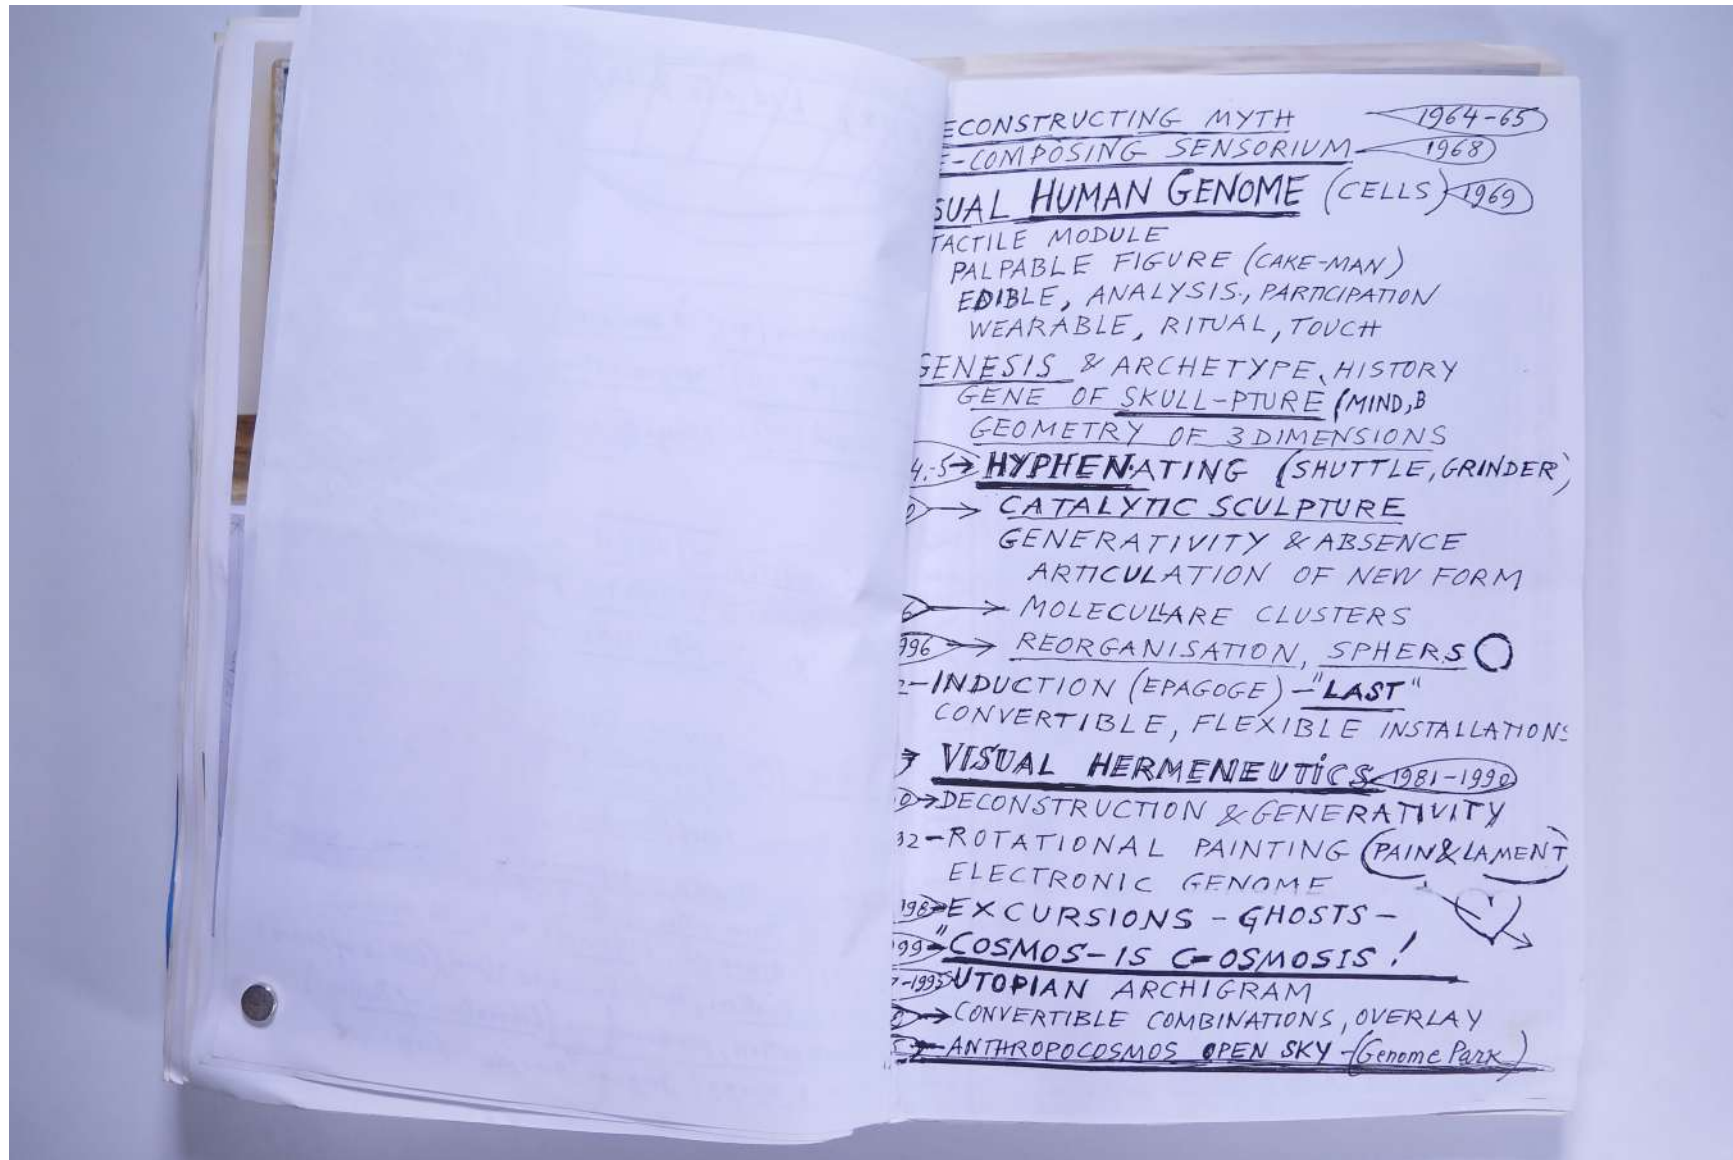 ECONSTRUCTING MYTH 1964-65
E-COMPOSING SENSORIUM 1968
SUAL HUMAN GENOME (CELLS) 1969
TACTILE MODULE
PALPABLE FIGURE (CAKE-MAN)
EDIBLE, ANALYSIS, PARTICIPATION
WEARABLE, RITUAL, TOUCH
GENESIS & ARCHETYPE, HISTORY
GENE OF SKULL-PTURE (MIND,B
GEOMETRY OF 3 DIMENSIONS
4.-5→ HYPHEN-ATING (SHUTTLE, GRINDER)
→ CATALYTIC SCULPTURE
GENERATIVITY & ABSENCE
ARTICULATION OF NEW FORM
6 → MOLECULLARE CLUSTERS
996 → REORGANISATION, SPHERS O
2-INDUCTION (EPAGOGE) - "LAST"
CONVERTIBLE, FLEXIBLE INSTALLATIONS
→ VISUAL HERMENEUTICS 1981-1990
0→ DECONSTRUCTION & GENERATIVITY
32-ROTATIONAL PAINTING (PAIN & LAMENT)
ELECTRONIC GENOME
198→ EXCURSIONS - GHOSTS -
199→ "COSMOS-IS C-OSMOSIS!
-1995 UTOPIAN ARCHIGRAM
0→ CONVERTIBLE COMBINATIONS, OVERLAY
ANTHROPOCOSMOS OPEN SKY - (Genome Park)